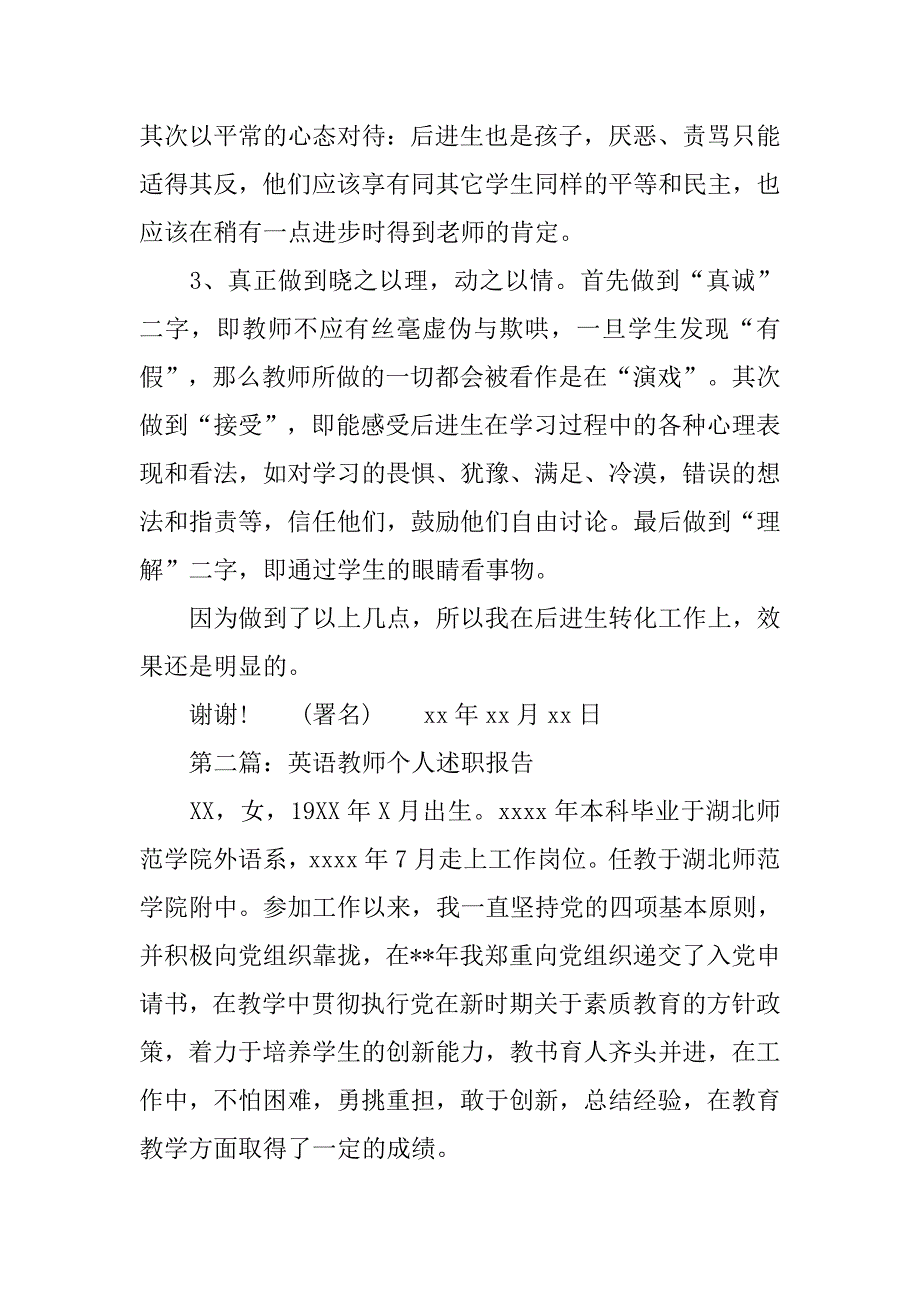 其次以平常的心态对待：后进生也是孩子，厌恶、责骂只能
适得其反，他们应该享有同其它学生同样的平等和民主，也
应该在稍有一点进步时得到老师的肯定。
3、真正做到晓之以理，动之以情。首先做到“真诚”
二字，即教师不应有丝毫虚伪与欺哄，一旦学生发现“有
假”，那么教师所做的一切都会被看作是在“演戏”。其次
做到“接受”，即能感受后进生在学习过程中的各种心理表
现和看法，如对学习的畏惧、犹豫、满足、冷漠，错误的想
法和指责等，信任他们，鼓励他们自由讨论。最后做到“理
解”二字，即通过学生的眼睛看事物。
因为做到了以上几点，所以我在后进生转化工作上，效
果还是明显的。
谢谢!　　(署名)　　xx 年 xx 月 xx 日
第二篇：英语教师个人述职报告
XX，女，19XX 年 X 月出生。xxxx 年本科毕业于湖北师
范学院外语系，xxxx 年 7 月走上工作岗位。任教于湖北师范
学院附中。参加工作以来，我一直坚持党的四项基本原则，
并积极向党组织靠拢，在**年我郑重向党组织递交了入党申
请书，在教学中贯彻执行党在新时期关于素质教育的方针政
策，着力于培养学生的创新能力，教书育人齐头并进，在工
作中，不怕困难，勇挑重担，敢于创新，总结经验，在教育
教学方面取得了一定的成绩。